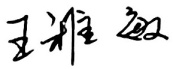 王雅敏